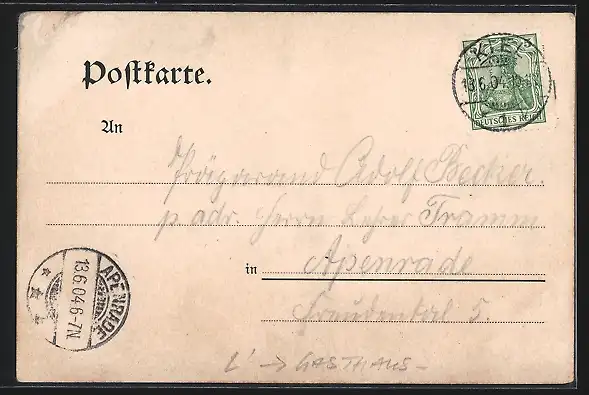 KIEL
13.6.04.
DEUTSCHES REICH
Postkarte.
An
Präparand Adolf Becker.
p. adr. Herrn Lehrer Framm
in Apenrade
5.
APENRADE
13.6.04.6-7N
L' → GASTHAUS -